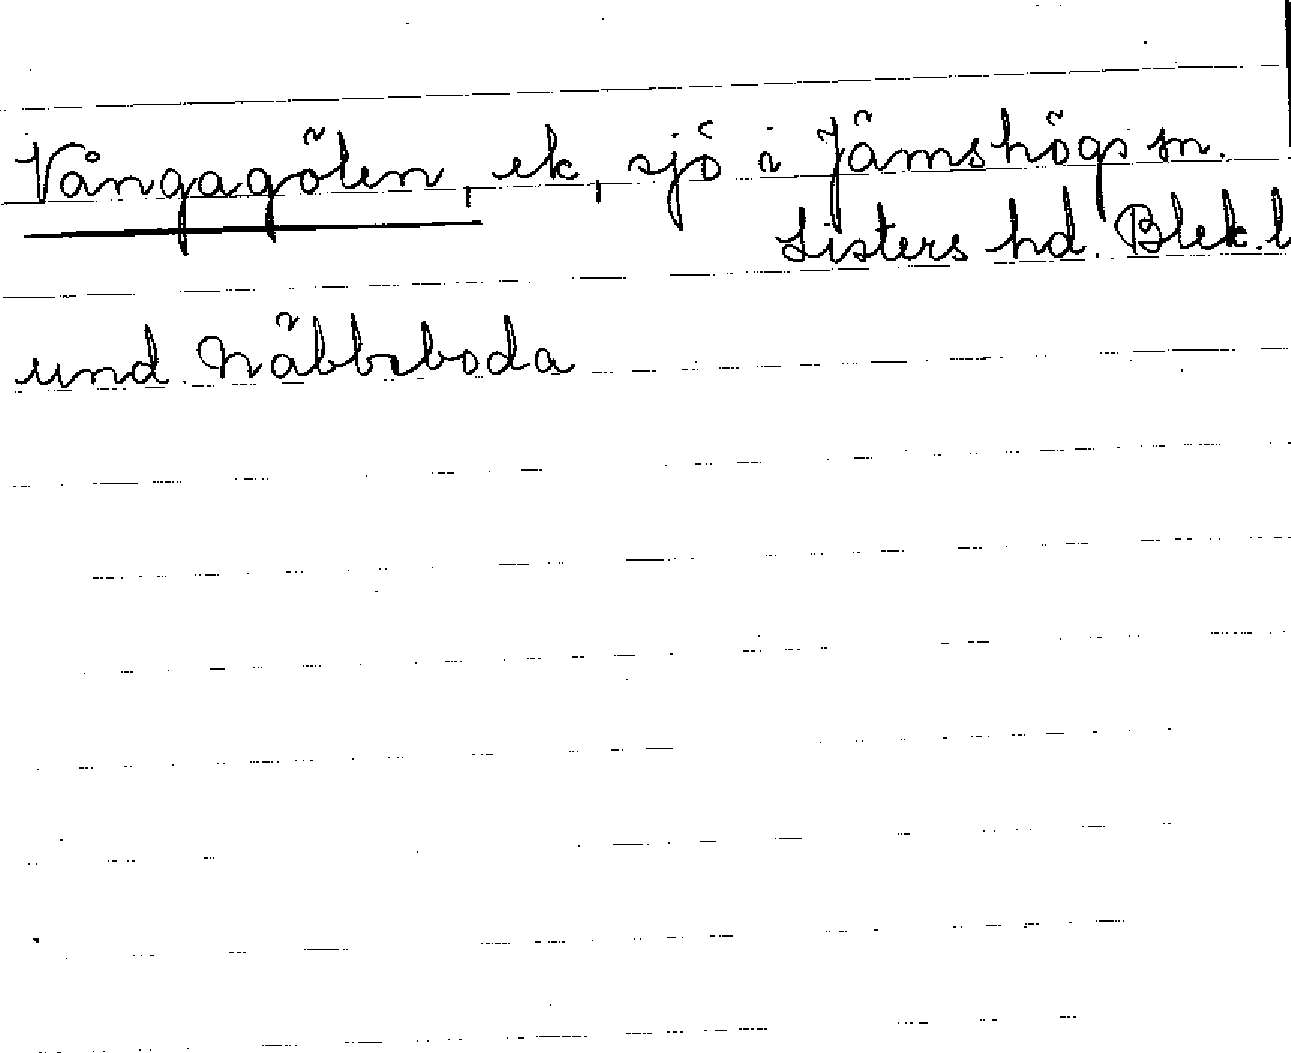 Vångagölen, ek, sjö i Jämshögs sn.
Listers hd. Blek. l
und. Näbbeboda